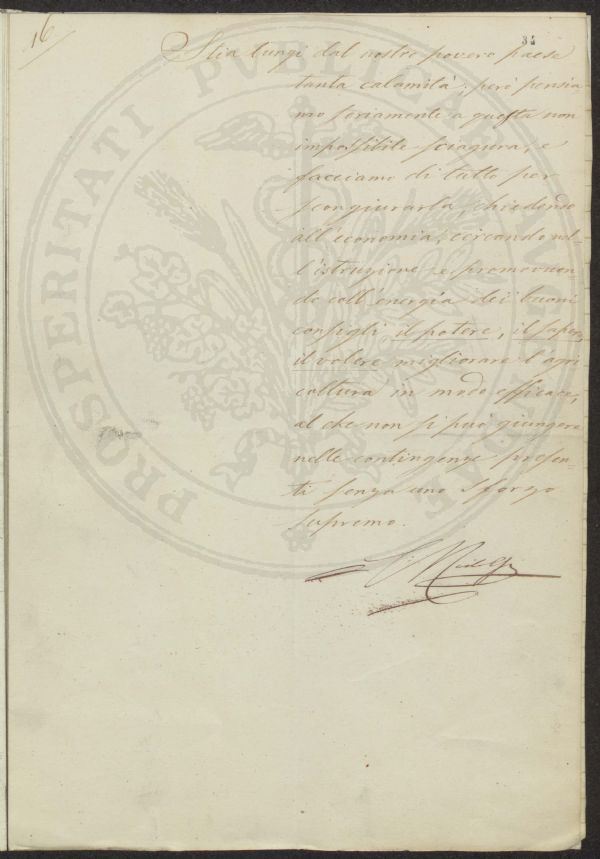 16
34
Stia lungi dal nostro povero paese
tanta calamità: però pensia
mo seriamente a questa non
impossibile sciagura, e
facciamo di tutto per
scongiurarla, chiedendo
all'economia, cercando nel=
l'istruzione e promovuon
do coll'energia dei buoni
consigli, il potere, il sapere,
il volere migliorare l'agri
coltura in modo efficace,
al che non si può giungere
nelle contingenze presen=
ti senza uno sforzo
supremo.
PROSPERITATI PUBLICAE AUGENDAE